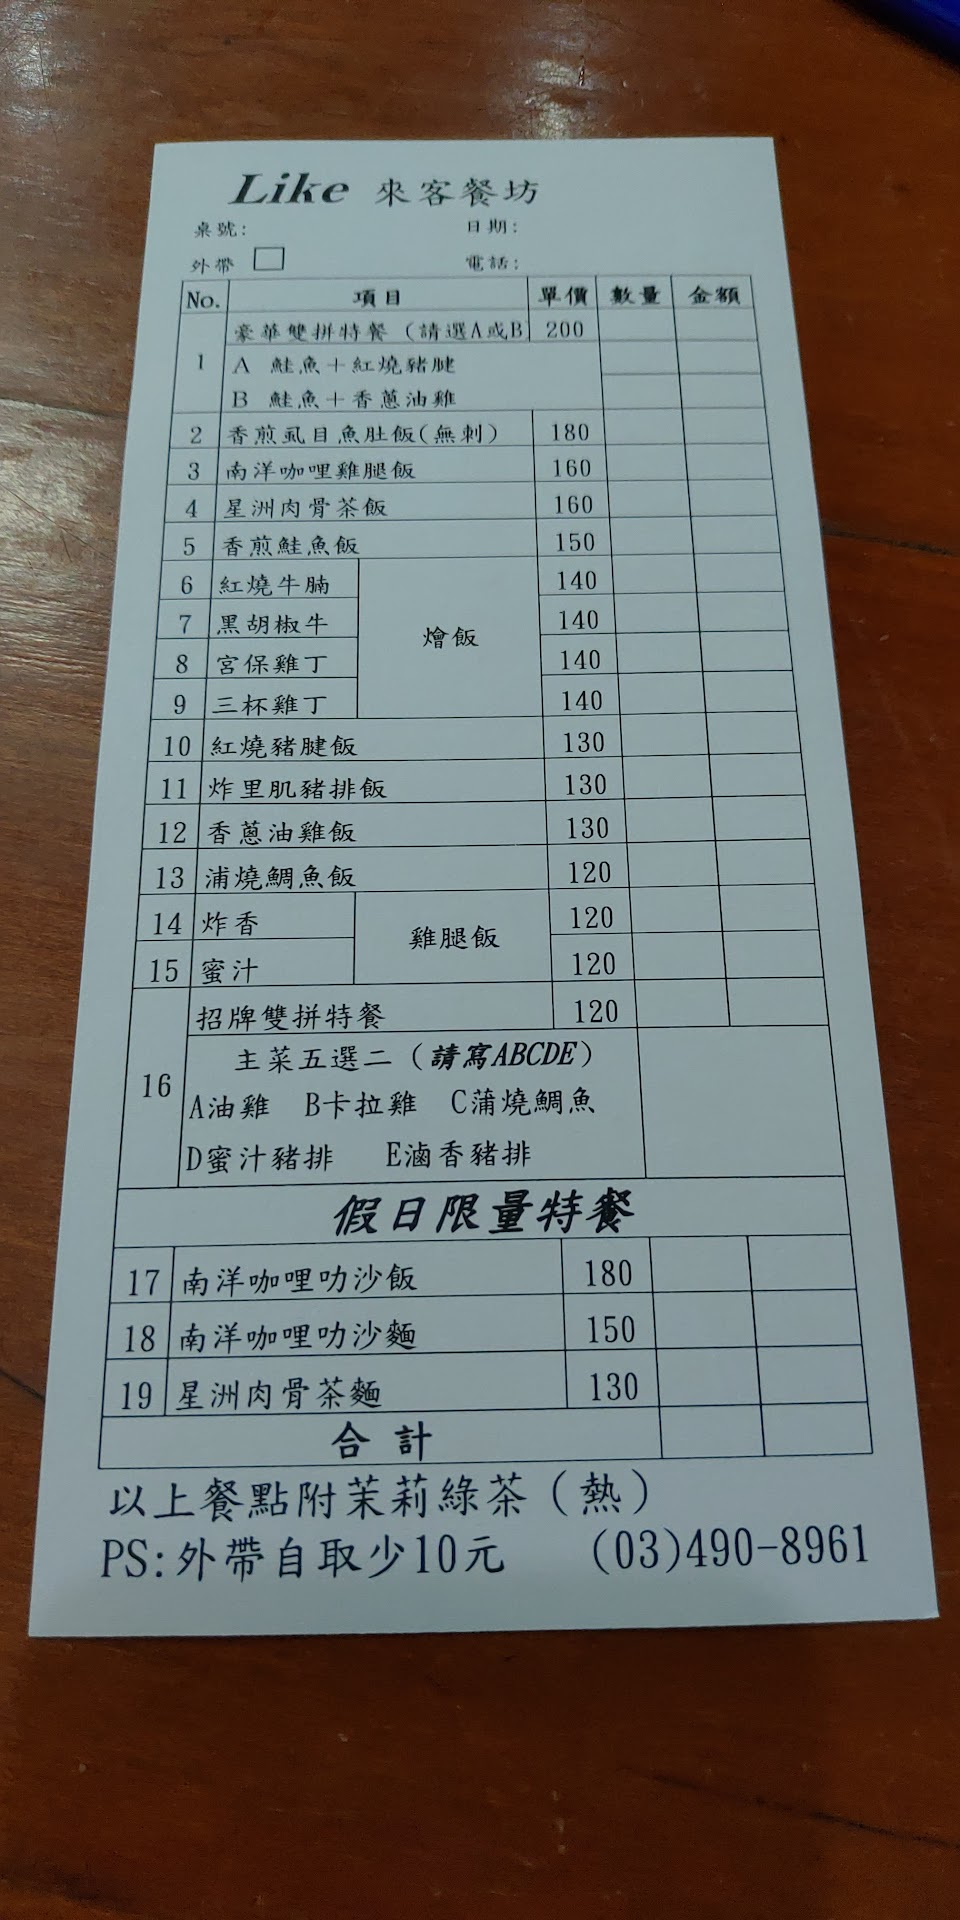 Like 來客餐坊
桌號: 日期:
外帶 電話:
No. 項目 單價 數量 金額
1 豪華雙拼特餐 (請選A或B 200
A 鮭魚+紅燒豬腱
B 鮭魚+香蔥油雞
2 香煎虱目魚肚飯(無刺) 180
3 南洋咖哩雞腿飯 160
4 星洲肉骨茶飯 160
5 香煎鮭魚飯 150
6 紅燒牛腩 140
7 黑胡椒牛 燴飯 140
8 宮保雞丁 140
9 三杯雞丁 140
10 紅燒豬腱飯 130
11 炸里肌豬排飯 130
12 香蔥油雞飯 130
13 浦燒鯛魚飯 120
14 炸香 雞腿飯 120
15 蜜汁 120
16 招牌雙拼特餐 120
主菜五選二 (請寫ABCDE)
A油雞 B卡拉雞 C蒲燒鯛魚
D蜜汁豬排 E滷香豬排
假日限量特餐
17 南洋咖哩叻沙飯 180
18 南洋咖哩叻沙麵 150
19 星洲肉骨茶麵 130
合計
以上餐點附茉莉綠茶(熱)
PS:外帶自取少10元 (03)490-8961